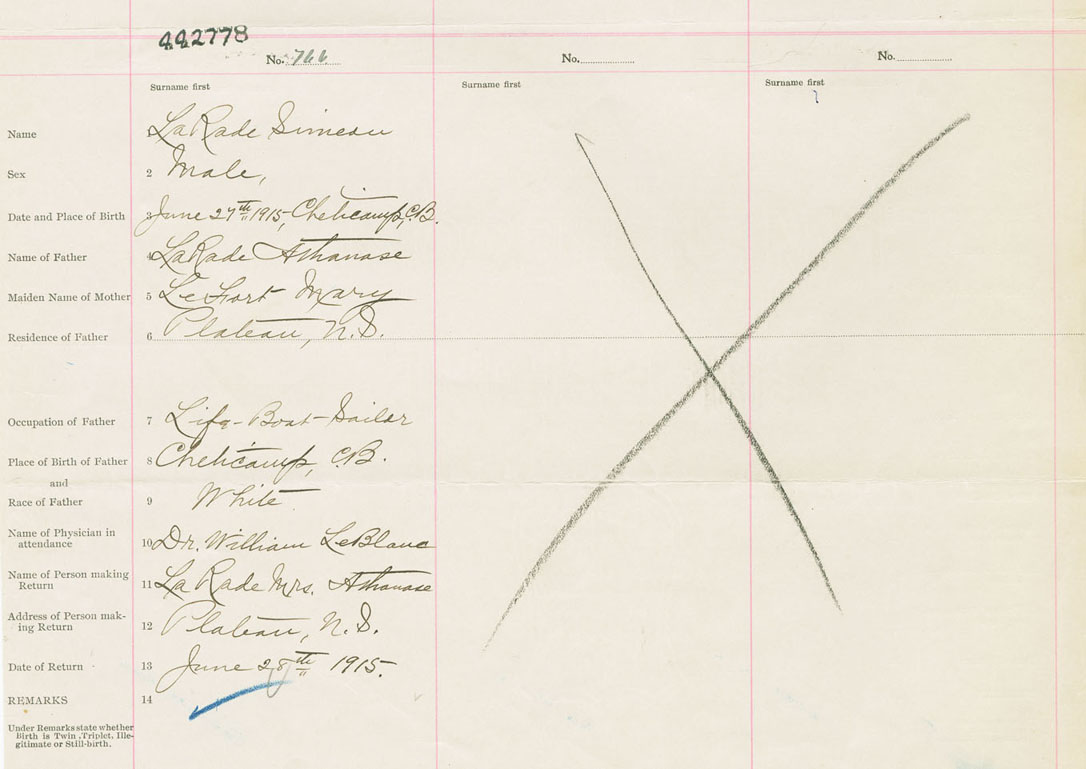 442778
No. 766 No. No.
Surname first Surname first Surname first
Name 1 LaRade Simeon
Sex 2 Male,
Date and Place of Birth 3 June 27th 1915, Cheticamp, C.B.
Name of Father 4 LaRade Athanase
Maiden Name of Mother 5 LeFort Mary
Residence of Father 6 Plateau, N.S.
Occupation of Father 7 Life-Boat-Sailor
Place of Birth of Father 8 Cheticamp, C.B.
and
Race of Father 9 White
Name of Physician in
attendance 10 Dr. William LeBlanc
Name of Person making
Return 11 LaRade Mrs. Athanase
Address of Person mak-
ing Return 12 Plateau, N.S.
Date of Return 13 June 28th 1915.
REMARKS 14
Under Remarks state whether
Birth is Twin, Triplet, Ille-
gitimate or Still-birth.